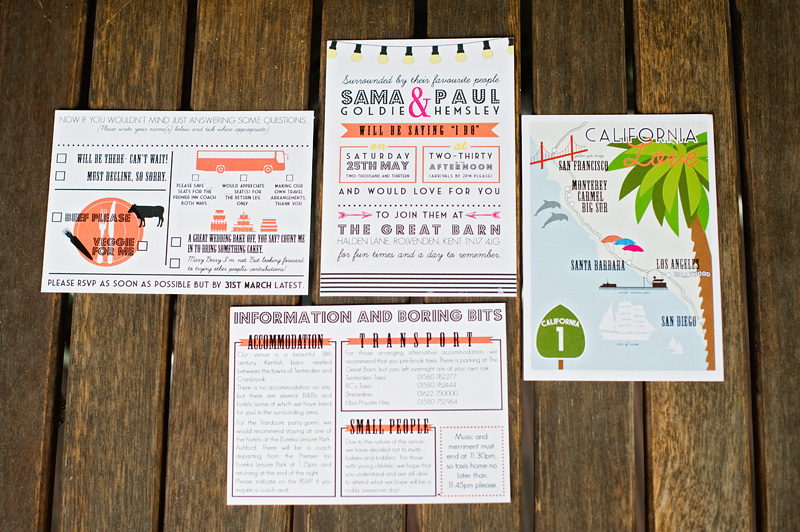 NOW IF YOU WOULDN'T MIND JUST ANSWERING SOME QUESTIONS.
(Please write your name(s) below and tick where appropriate)
WILL BE THERE- CAN'T WAIT!
MUST DECLINE, SO SORRY.
PLEASE SAVE
SEATS FOR THE
PREMIER INN COACH
BOTH WAYS
WOULD APPRECIATE
SEAT(S) FOR
THE RETURN LEG
ONLY
MAKING OUR
OWN TRAVEL
ARRANGEMENTS,
THANK YOU
BEEF PLEASE
VEGGIE
FOR ME
A GREAT WEDDING BAKE OFF, YOU SAY? COUNT ME
IN TO BRING SOMETHING CAKEY.
Mary Berry I'm not. But looking forward
to trying other people's contributions!
PLEASE RSVP AS SOON AS POSSIBLE BUT BY 31ST MARCH LATEST.
Surrounded by their favourite people
SAMA & PAUL
GOLDIE HEMSLEY
WILL BE SAYING "I DO"
on
SATURDAY
25TH MAY
TWO THOUSAND AND THIRTEEN
at
TWO-THIRTY
AFTERNOON
(ARRIVALS BY 2PM PLEASE!)
AND WOULD LOVE FOR YOU
TO JOIN THEM AT
THE GREAT BARN
HALDEN LANE, ROLVENDEN, KENT TN17 4JG
for fun times and a day to remember.
CALIFORNIA
Love
SAN FRANCISCO
MONTEREY
CARMEL
BIG SUR
SANTA BARBARA
LOS ANGELES
HOLLYWOOD
SAN DIEGO
CALIFORNIA
1
INFORMATION AND BORING BITS
ACCOMMODATION
Our venue is a beautiful 18th
century Kentish barn nestled
between the towns of Tenterden and
Cranbrook.
There is no accommodation on site,
but there are several B&Bs and
hotels (some of which we have
listed for you) in the surrounding area.
For the 'hardcore party-goers' we
would recommend staying at one
of the hotels at the Eureka Leisure Park,
Ashford. There will be a coach
departing from the Premier Inn
Eureka Leisure Park at 1.15pm, and
returning at the end of the night.
Please indicate on the RSVP if you
require a coach seat.
TRANSPORT
For those arranging alternative accommodation, we
recommend that you pre-book taxis. There is parking at
The Great Barn, but cars left overnight are at your own risk.
Tenterden Taxis: 01580 762277
RC's Taxis: 01580 761444
Streamline: 01622 750000
Elba Private Hire: 01580 752984
SMALL PEOPLE
Due to the nature of the venue
we have decided not to invite
babies and toddlers. For those
with young children, we hope that
you understand and are still able
to attend what we hope will be a
really awesome day!
Music and
merriment must
end at 11.30pm,
so taxis home no
later than
11.45pm please.